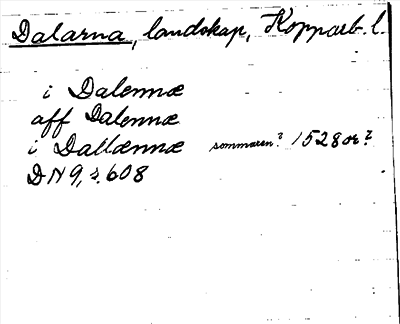 Dalarna, landskap, Kopparb. l.
i Dalennæ
aff Dalennæ
i Dallænnæ sommaren? 1528 or?
DN 9, s. 608